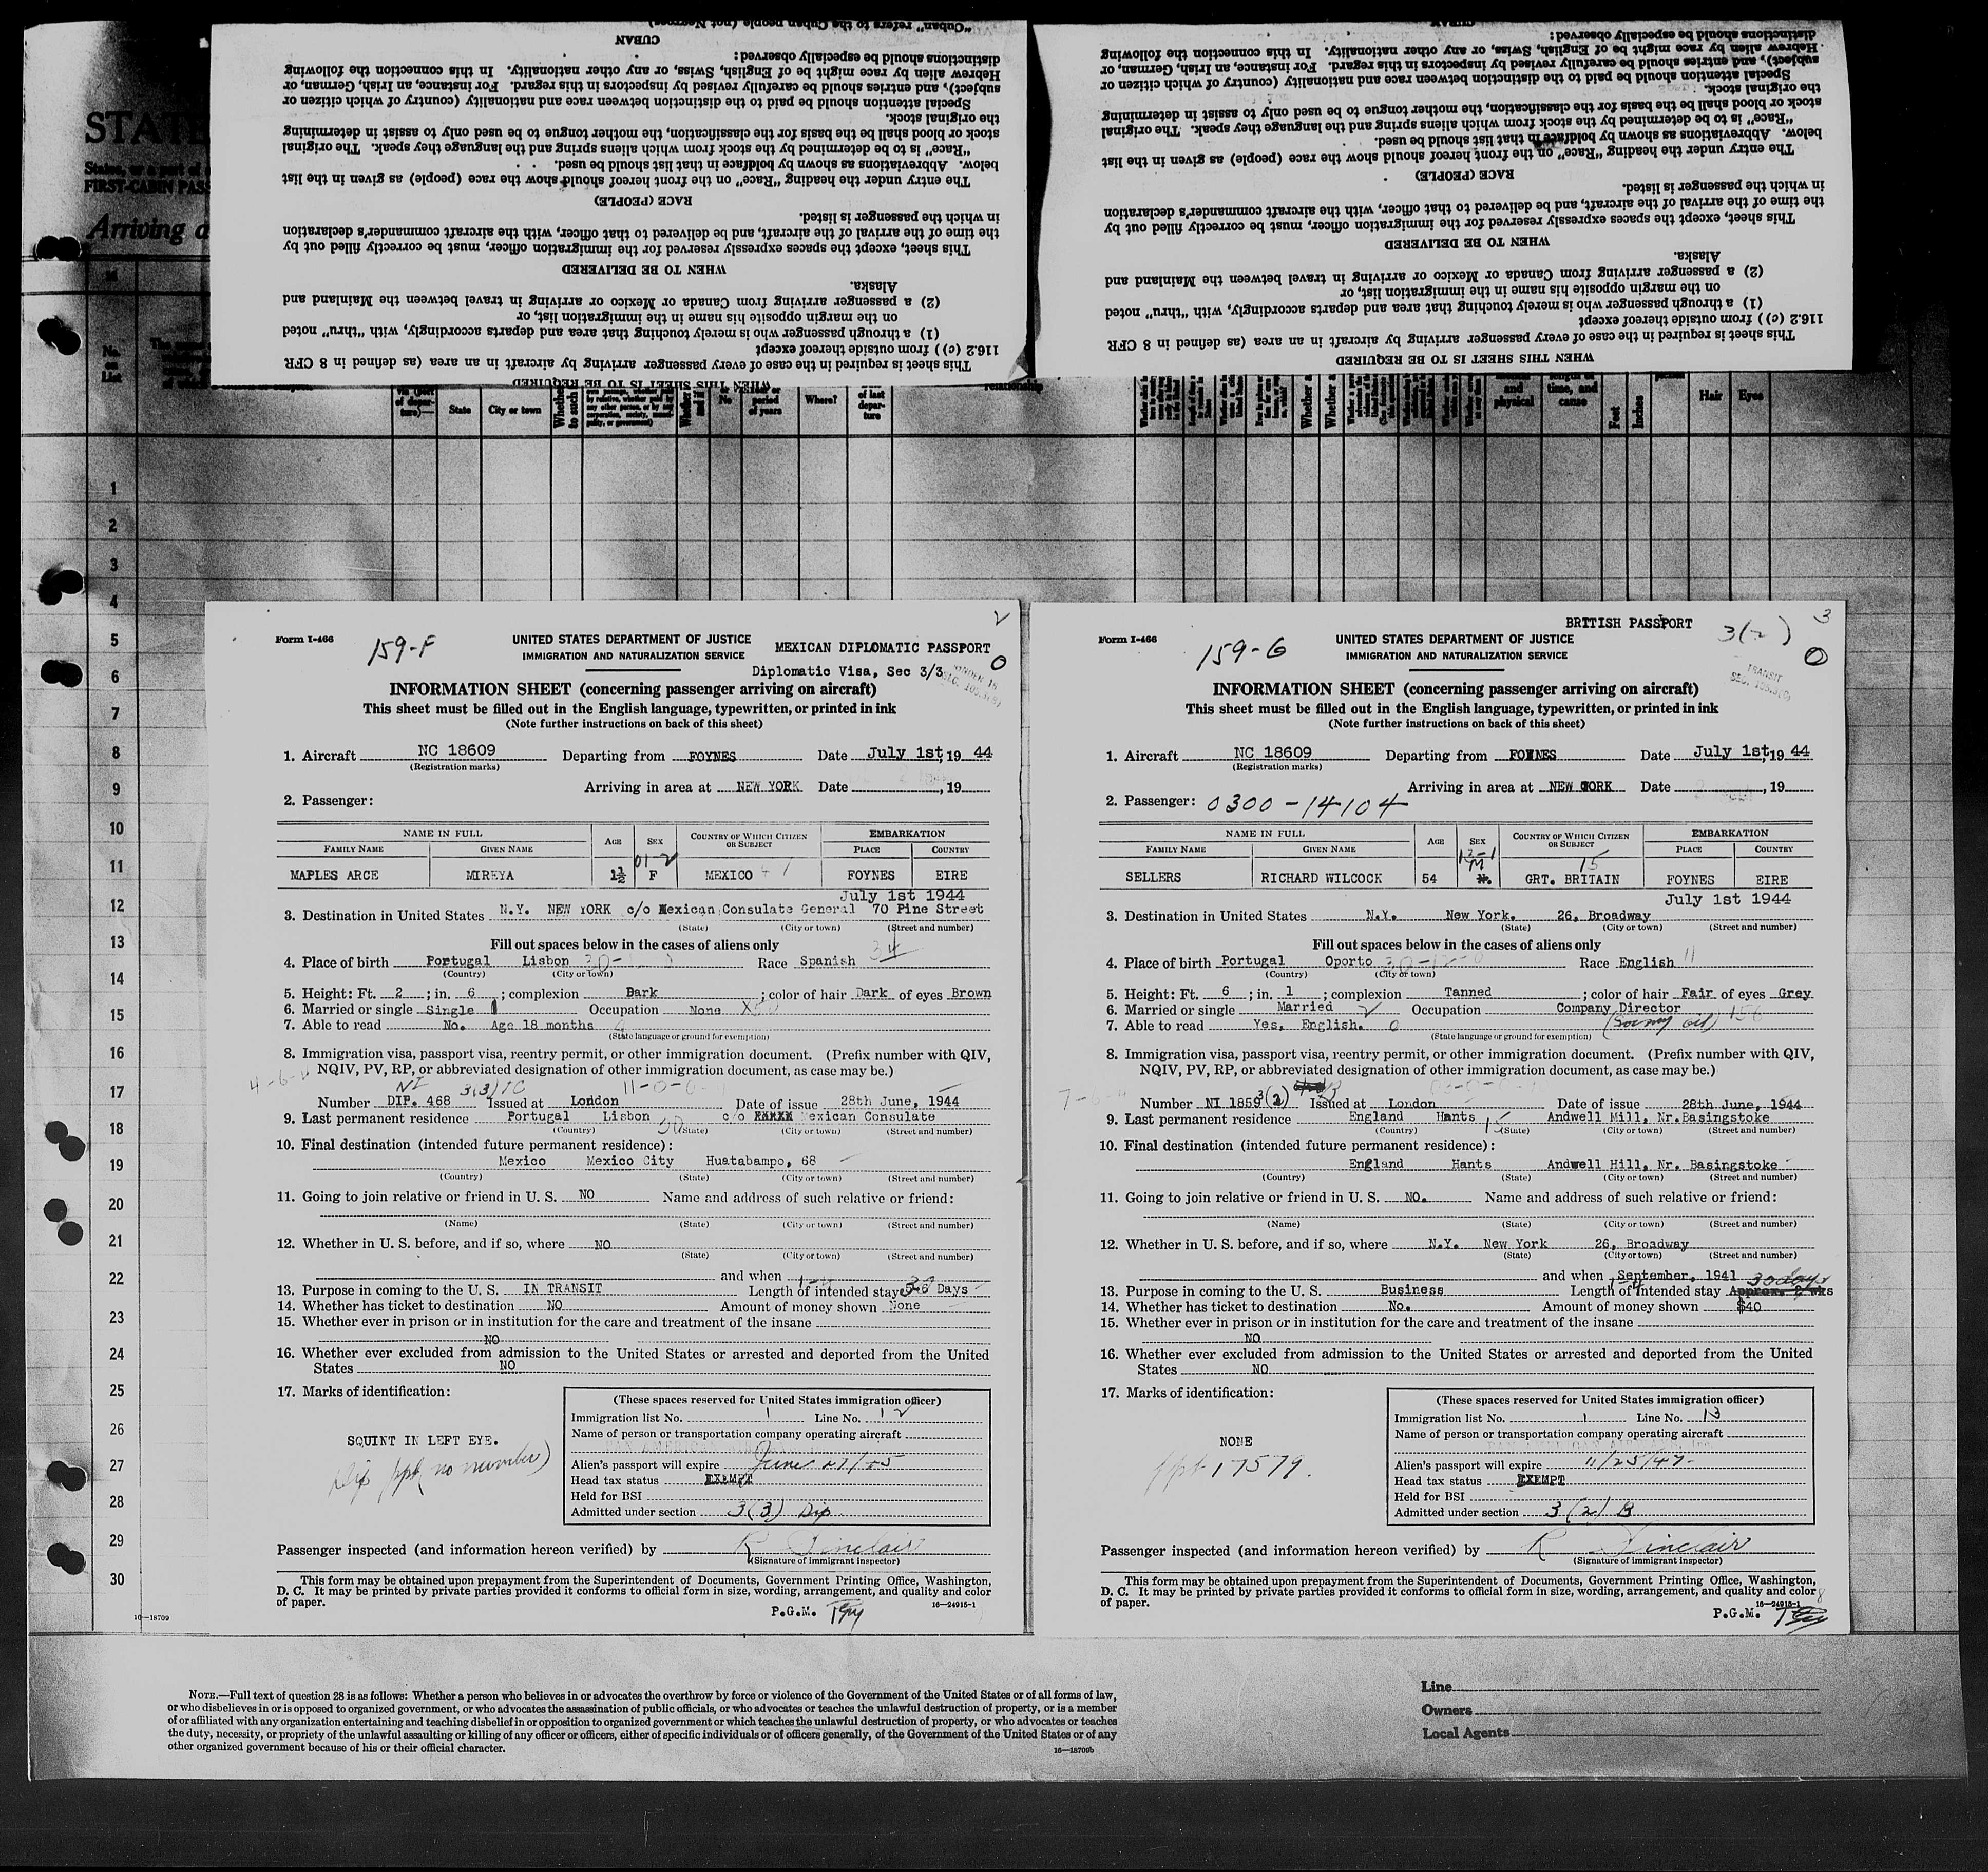 "Cuban" refers to the Cuban people (not Negroes)
CUBAN
distinctions should be especially observed:
Hebrew alien by race might be of English, Swiss, or any other nationality. In this connection the following
subject), and entries should be carefully revised by inspectors in this regard. For instance, an Irish, German, or
Special attention should be paid to the distinction between race and nationality (country of which citizen or
the original stock.
stock or blood shall be the basis for the classification, the mother tongue to be used only to assist in determining
"Race" is to be determined by the stock from which aliens spring and the language they speak. The original
below. Abbreviations as shown by boldface in that list should be used.
The entry under the heading "Race" on the front hereof should show the race (people) as given in the list
RACE (PEOPLE)
in which the passenger is listed.
the time of the arrival of the aircraft, and be delivered to that officer, with the aircraft commander's declaration
This sheet, except the spaces expressly reserved for the immigration officer, must be correctly filled out by
WHEN TO BE DELIVERED
Alaska.
(2) a passenger arriving from Canada or Mexico or arriving in travel between the Mainland and
on the margin opposite his name in the immigration list, or
(1) a through passenger who is merely touching that area and departs accordingly, with "thru" noted
116.2 (c)) from outside thereof except
This sheet is required in the case of every passenger arriving by aircraft in an area (as defined in 8 CFR
WHEN THIS SHEET IS TO BE REQUIRED
CUBAN
distinctions should be especially observed:
Hebrew alien by race might be of English, Swiss, or any other nationality. In this connection the following
subject), and entries should be carefully revised by inspectors in this regard. For instance, an Irish, German, or
Special attention should be paid to the distinction between race and nationality (country of which citizen or
the original stock.
stock or blood shall be the basis for the classification, the mother tongue to be used only to assist in determining
"Race" is to be determined by the stock from which aliens spring and the language they speak. The original
below. Abbreviations as shown by boldface in that list should be used.
The entry under the heading "Race" on the front hereof should show the race (people) as given in the list
RACE (PEOPLE)
in which the passenger is listed.
the time of the arrival of the aircraft, and be delivered to that officer, with the aircraft commander's declaration
This sheet, except the spaces expressly reserved for the immigration officer, must be correctly filled out by
WHEN TO BE DELIVERED
Alaska.
(2) a passenger arriving from Canada or Mexico or arriving in travel between the Mainland and
on the margin opposite his name in the immigration list, or
(1) a through passenger who is merely touching that area and departs accordingly, with "thru" noted
116.2 (c)) from outside thereof except
This sheet is required in the case of every passenger arriving by aircraft in an area (as defined in 8 CFR
WHEN THIS SHEET IS TO BE REQUIRED
STATE
FIRST-CABIN PASS
Arriving a
No. on List
State
City or town
No
period of years
Where?
of last departure
relationship
and physical
time, and cause
Feet
Inches
Hair
Eyes
1
2
3
4
5
6
7
8
9
10
11
12
13
14
15
16
17
18
19
20
21
22
23
24
25
26
27
28
29
30
16—18709
2
Form I-466
159-F
UNITED STATES DEPARTMENT OF JUSTICE
IMMIGRATION AND NATURALIZATION SERVICE
MEXICAN DIPLOMATIC PASSPORT
Diplomatic Visa, Sec 3/3
INFORMATION SHEET (concerning passenger arriving on aircraft)
This sheet must be filled out in the English language, typewritten, or printed in ink
(Note further instructions on back of this sheet)
1. Aircraft NC 18609 Departing from FOYNES Date July 1st, 19 44
(Registration marks)
Arriving in area at NEW YORK Date , 19
2. Passenger:
NAME IN FULL AGE SEX COUNTRY OF WHICH CITIZEN OR SUBJECT EMBARKATION
FAMILY NAME GIVEN NAME PLACE COUNTRY
01-2
MAPLES ARCE MIREYA 1½ F MEXICO FOYNES EIRE
July 1st 1944
3. Destination in United States N.Y. NEW YORK c/o Mexican Consulate General 70 Pine Street
(State) (City or town) (Street and number)
Fill out spaces below in the cases of aliens only
4. Place of birth Portugal Lisbon Race Spanish 34
(Country) (City or town)
5. Height: Ft. 2; in. 6; complexion Dark; color of hair Dark of eyes Brown
6. Married or single Single Occupation None
7. Able to read No. Age 18 months
(State language or ground for exemption)
8. Immigration visa, passport visa, reentry permit, or other immigration document. (Prefix number with QIV,
NQIV, PV, RP, or abbreviated designation of other immigration document, as case may be.)
NI 3(3)
Number DIP. 468 Issued at London Date of issue 28th June, 1944
9. Last permanent residence Portugal Lisbon c/o Mexican Consulate
(Country) (State) (City or town) (Street and number)
10. Final destination (intended future permanent residence):
Mexico Mexico City Huatabampo, 68
(Country) (State) (City or town) (Street and number)
11. Going to join relative or friend in U. S. NO Name and address of such relative or friend:
(Name) (State) (City or town) (Street and number)
12. Whether in U. S. before, and if so, where NO
(State) (City or town) (Street and number)
and when
13. Purpose in coming to the U. S. IN TRANSIT Length of intended stay 30 Days
14. Whether has ticket to destination NO Amount of money shown None
15. Whether ever in prison or in institution for the care and treatment of the insane
NO
16. Whether ever excluded from admission to the United States or arrested and deported from the United
States NO
17. Marks of identification:
SQUINT IN LEFT EYE.
Dip ppt no number)
(These spaces reserved for United States immigration officer)
Immigration list No. 1 Line No. 12
Name of person or transportation company operating aircraft
Alien's passport will expire June
Head tax status EXEMPT
Held for BSI
Admitted under section 3(3) Dip
Passenger inspected (and information hereon verified) by R Sinclair
(Signature of immigrant inspector)
This form may be obtained upon prepayment from the Superintendent of Documents, Government Printing Office, Washington,
D. C. It may be printed by private parties provided it conforms to official form in size, wording, arrangement, and quality and color
of paper.
16—24915-1
P.G.M.
BRITISH PASSPORT
3
3(2)
Form I-466
159-G
UNITED STATES DEPARTMENT OF JUSTICE
IMMIGRATION AND NATURALIZATION SERVICE
TRANSIT
INFORMATION SHEET (concerning passenger arriving on aircraft)
This sheet must be filled out in the English language, typewritten, or printed in ink
(Note further instructions on back of this sheet)
1. Aircraft NC 18609 Departing from FOYNES Date July 1st, 19 44
(Registration marks)
Arriving in area at NEW YORK Date , 19
2. Passenger: 0300-14104
NAME IN FULL AGE SEX COUNTRY OF WHICH CITIZEN OR SUBJECT EMBARKATION
FAMILY NAME GIVEN NAME PLACE COUNTRY
15
SELLERS RICHARD WILCOCK 54 M GRT. BRITAIN FOYNES EIRE
July 1st 1944
3. Destination in United States N.Y. New York. 26, Broadway
(State) (City or town) (Street and number)
Fill out spaces below in the cases of aliens only
4. Place of birth Portugal Oporto Race English 11
(Country) (City or town)
5. Height: Ft. 6; in. 1; complexion Tanned; color of hair Fair of eyes Grey
6. Married or single Married Occupation Company Director
7. Able to read Yes, English.
(State language or ground for exemption)
8. Immigration visa, passport visa, reentry permit, or other immigration document. (Prefix number with QIV,
NQIV, PV, RP, or abbreviated designation of other immigration document, as case may be.)
Number NI 1859 3(2) Issued at London Date of issue 28th June, 1944
9. Last permanent residence England Hants 15 Andwell Mill, Nr. Basingstoke
(Country) (State) (City or town) (Street and number)
10. Final destination (intended future permanent residence):
England Hants Andwell Hill, Nr. Basingstoke
(Country) (State) (City or town) (Street and number)
11. Going to join relative or friend in U. S. NO. Name and address of such relative or friend:
(Name) (State) (City or town) (Street and number)
12. Whether in U. S. before, and if so, where N.Y. New York 26, Broadway
(State) (City or town) (Street and number)
and when September, 1941
30 days
13. Purpose in coming to the U. S. Business Length of intended stay Approx. 2 wks
14. Whether has ticket to destination No. Amount of money shown $40
15. Whether ever in prison or in institution for the care and treatment of the insane
NO
16. Whether ever excluded from admission to the United States or arrested and deported from the United
States NO
17. Marks of identification:
NONE
ppt 17579.
(These spaces reserved for United States immigration officer)
Immigration list No. 1 Line No. 13
Name of person or transportation company operating aircraft
Alien's passport will expire 11/25/47
Head tax status EXEMPT
Held for BSI
Admitted under section 3(2) B
Passenger inspected (and information hereon verified) by R Sinclair
(Signature of immigrant inspector)
This form may be obtained upon prepayment from the Superintendent of Documents, Government Printing Office, Washington,
D. C. It may be printed by private parties provided it conforms to official form in size, wording, arrangement, and quality and color
of paper.
16—24915-1
P.G.M.
NOTE.—Full text of question 28 is as follows: Whether a person who believes in or advocates the overthrow by force or violence of the Government of the United States or of all forms of law,
or who disbelieves in or is opposed to organized government, or who advocates the assassination of public officials, or who advocates or teaches the unlawful destruction of property, or is a member
of or affiliated with any organization entertaining and teaching disbelief in or opposition to organized government or which teaches the unlawful destruction of property, or who advocates or teaches
the duty, necessity, or propriety of the unlawful assaulting or killing of any officer or officers, either of specific individuals or of officers generally, of the Government of the United States or of any
other organized government because of his or their official character.
16—18709b
Line
Owners
Local Agents